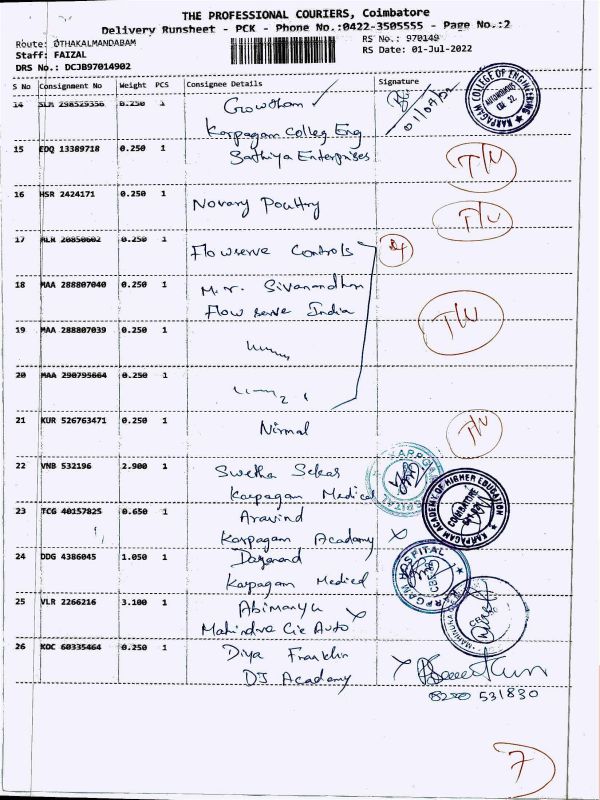 THE PROFESSIONAL COURIERS, Coimbatore
Delivery Runsheet - PCK - Phone No.:0422-3505555 - Page No.:2
Route: OTHAKALMANDABAM
RS No.: 970149
Staff: FAIZAL
RS Date: 01-Jul-2022
DRS No.: DCJB97014902
S No Consignment No Weight PCS Consignee Details Signature
14 SLM 298529356 0.250 1 Gowtham
Karpagam Colleg Eng
KARPAGAM COLLEGE OF ENGINEERING
AUTONOMOUS
15 EDQ 13389718 0.250 1 Sathiya Enterprises
16 HSR 2424171 0.250 1 Novary Poultry
17 MLR 20850602 0.250 1 Flowserve Controls
18 MAA 288807040 0.250 1 M.r. Sivanandhn
Flow serve India
19 MAA 288807039 0.250 1
20 MAA 290795664 0.250 1
21 KUR 526763471 0.250 1 Nirmal
22 VNB 532196 2.900 1 Swetha Sekar
Karpagam Medical
KARPAGAM ACADEMY OF HIGHER EDUCATION
COIMBATORE
23 TCG 40157825 0.650 1 Aravind
Karpagam Academy
24 DDG 4386045 1.050 1 Dayanand
Karpagam Medical
HOSPITAL
25 VLR 2266216 3.100 1 Abimanyu
Mahindra Cie Auto
26 KOC 60335464 0.250 1 Diya Franklin
DJ Academy
8220 531830
7